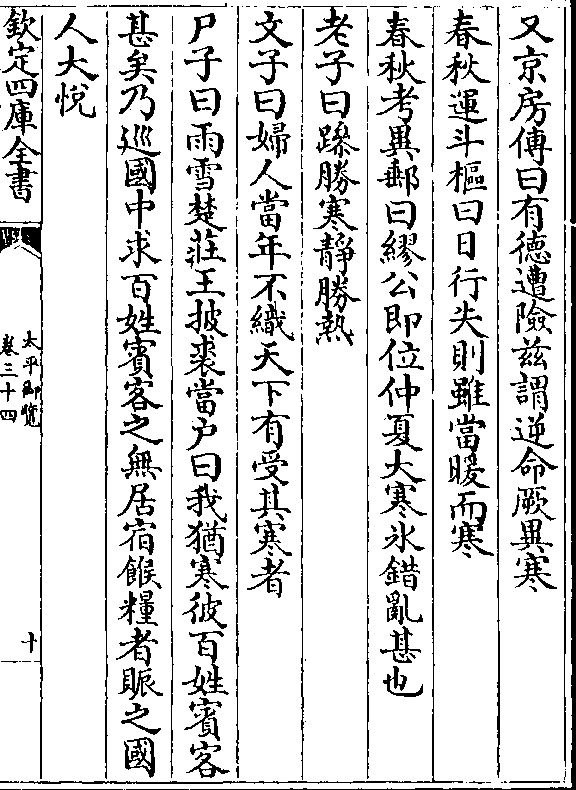 又京房傳曰有德遭險兹謂逆命厥異寒
春秋運斗樞曰日行失則雖當暖而寒
春秋考異郵曰繆公即位仲夏大寒氷錯亂甚也
老子曰躁勝寒静勝熱
文子曰婦人當年不織天下有受其寒者
尸子曰雨雪楚莊王披裘當户曰我猶寒彼百姓賓客
甚矣乃巡國中求百姓賓客之無居宿餱糧者賑之國
人大悦
欽定四庫全書
太平御覽
卷三十四
十